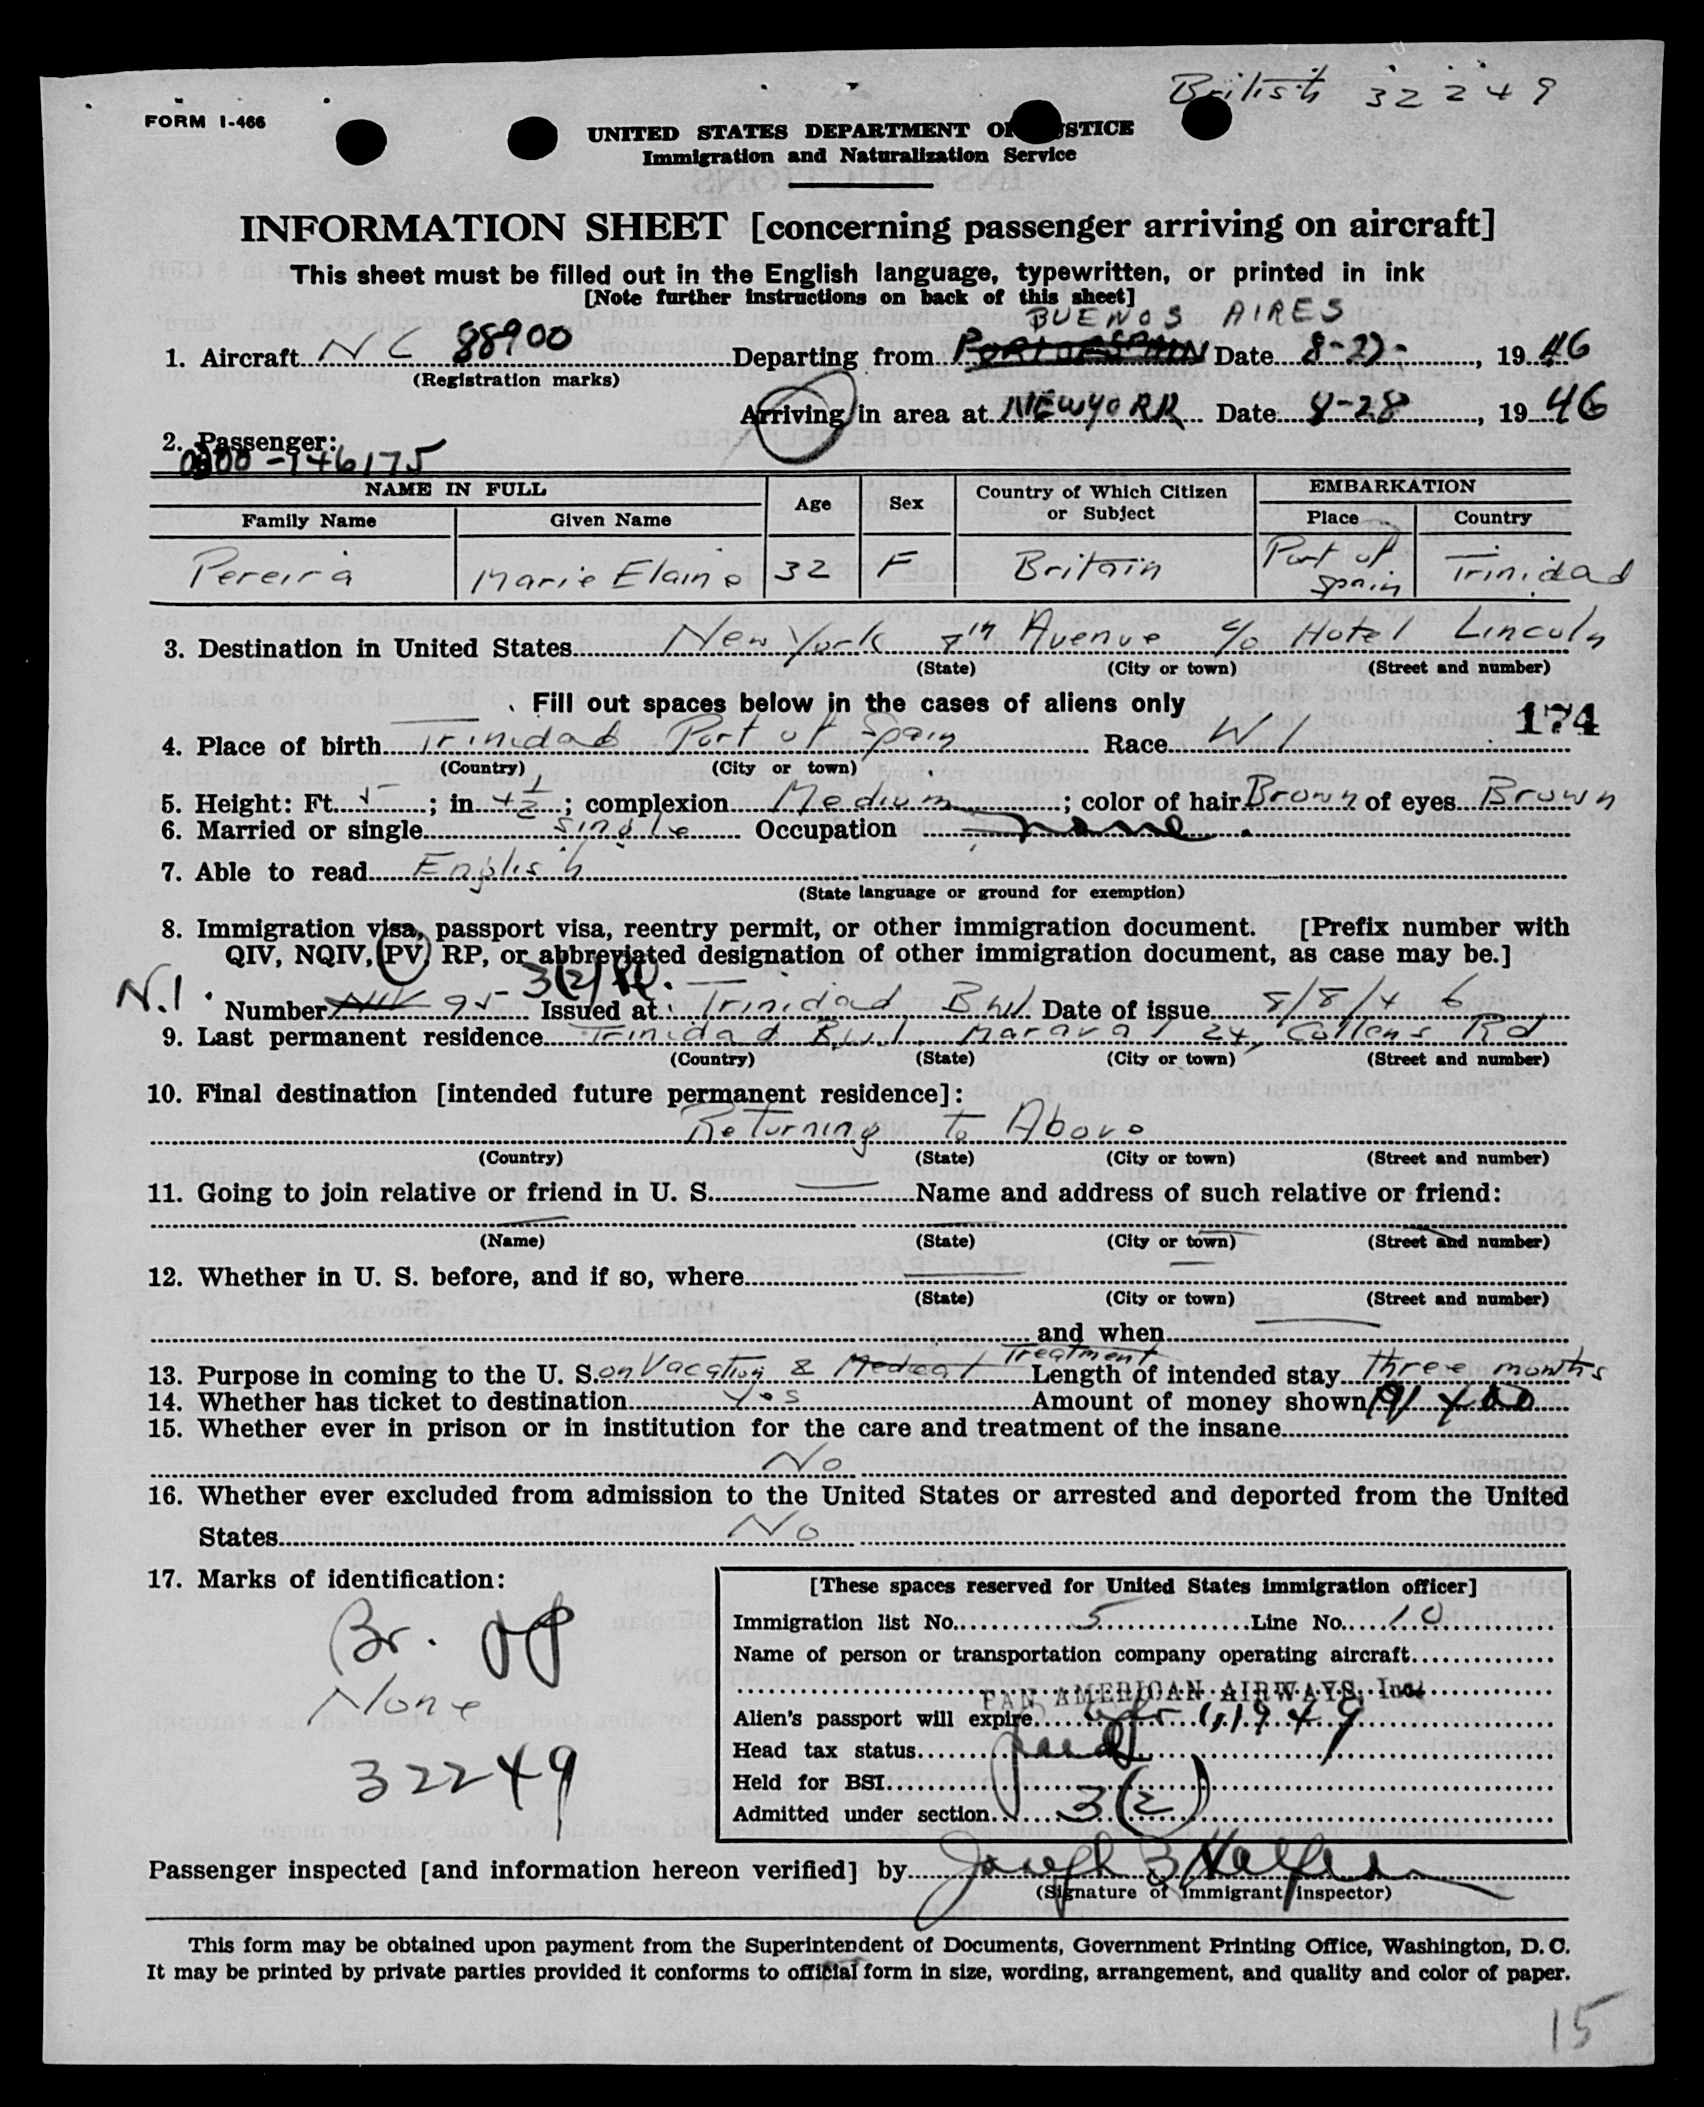 British 32249
FORM I-466
UNITED STATES DEPARTMENT OF JUSTICE
Immigration and Naturalization Service
INFORMATION SHEET [concerning passenger arriving on aircraft]
This sheet must be filled out in the English language, typewritten, or printed in ink
[Note further instructions on back of this sheet]
BUENOS AIRES
1. Aircraft NC 88900 Departing from PORT OF SPAIN Date 8-27-, 1946
(Registration marks)
Arriving in area at NEW YORK Date 8-28, 1946
2. Passenger:
0300-146175
NAME IN FULL Age Sex Country of Which Citizen or Subject EMBARKATION
Family Name Given Name Place Country
Pereira Marie Elaine 32 F Britain Port of Spain Trinidad
3. Destination in United States New York 8th Avenue c/o Hotel Lincoln
(State) (City or town) (Street and number)
Fill out spaces below in the cases of aliens only
174
4. Place of birth Trinidad Port of Spain Race W I
(Country) (City or town)
5. Height: Ft. 5; in. 4½; complexion Medium; color of hair Brown of eyes Brown
6. Married or single Single Occupation none
7. Able to read English
(State language or ground for exemption)
8. Immigration visa, passport visa, reentry permit, or other immigration document. [Prefix number with
QIV, NQIV, PV, RP, or abbreviated designation of other immigration document, as case may be.]
N.I. 3(2)
Number 95 Issued at Trinidad B.W.I. Date of issue 8/8/46
9. Last permanent residence Trinidad B.W.I. Maraval 24, Collens Rd
(Country) (State) (City or town) (Street and number)
10. Final destination [intended future permanent residence]:
Returning to Above
(Country) (State) (City or town) (Street and number)
11. Going to join relative or friend in U. S. — Name and address of such relative or friend:
(Name) (State) (City or town) (Street and number)
12. Whether in U. S. before, and if so, where —
(State) (City or town) (Street and number)
and when —
13. Purpose in coming to the U. S. on Vacation & Medical Treatment Length of intended stay three months
14. Whether has ticket to destination Yes Amount of money shown 400
15. Whether ever in prison or in institution for the care and treatment of the insane
No
16. Whether ever excluded from admission to the United States or arrested and deported from the United
States No
17. Marks of identification:
Br. pp
None
32249
[These spaces reserved for United States immigration officer]
Immigration list No. 5 Line No. 10
Name of person or transportation company operating aircraft
PAN AMERICAN AIRWAYS, Inc.
Alien's passport will expire Apr 11, 1949
Head tax status paid
Held for BSI
Admitted under section 3(2)
Passenger inspected [and information hereon verified] by Joseph B Halpern
(Signature of Immigrant Inspector)
This form may be obtained upon payment from the Superintendent of Documents, Government Printing Office, Washington, D. C.
It may be printed by private parties provided it conforms to official form in size, wording, arrangement, and quality and color of paper.
15